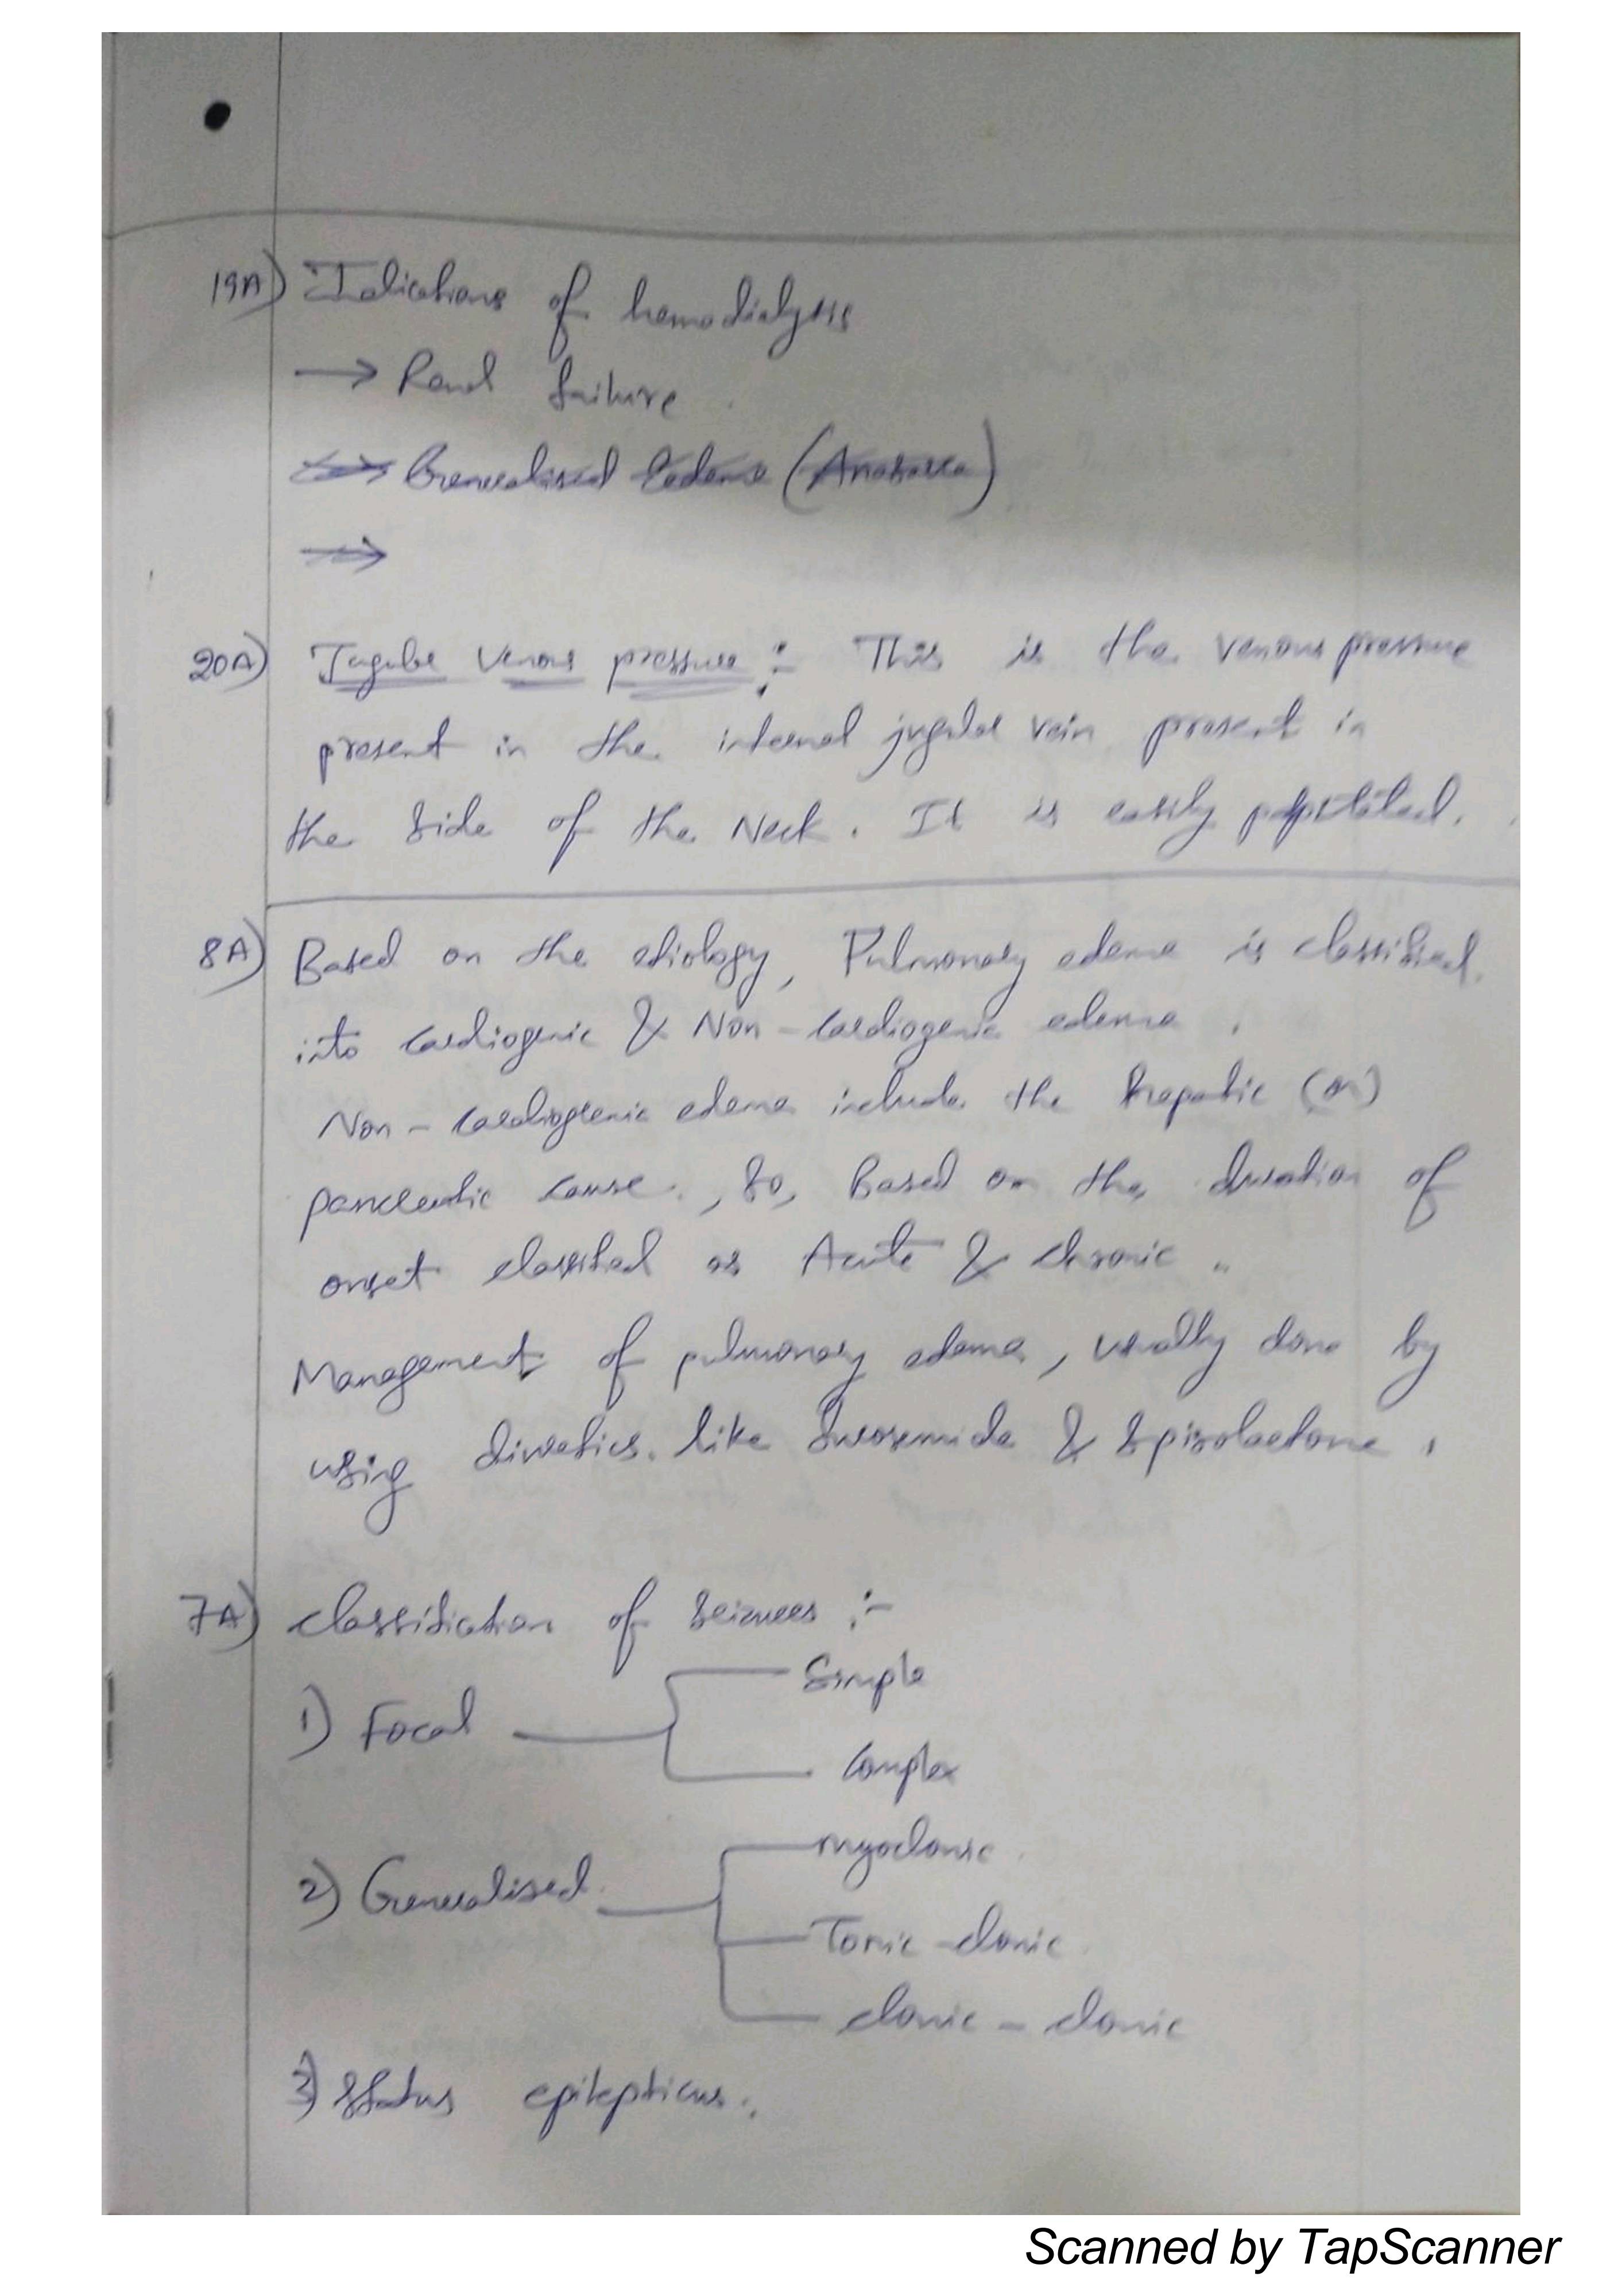 19A) Indications of hemodialysis
→ Renal failure.
→ Generalised Eedema (Anasarca)
→
20A) Jugular Venous pressure :- This is the venous pressure
present in the internal jugular vein present in
the side of the Neck. It is easily
8A) Based on the etiology, Pulmonary edema is classified
into cardiogenic & Non-cardiogenic edema.
Non-cardiogenic edema include the hepatic (or)
pancreatic cause., So, Based on the duration of
onset classified as Acute & chronic.
Management of pulmonary edema, usually done by
using diuretics. like furosemide & Spirolactone.
7A) classification of Seizures :-
Simple
1) Focal
Complex
myoclonic.
2) Generalised.
Tonic-clonic.
clonic - clonic
3) Status epilepticus.
Scanned by TapScanner